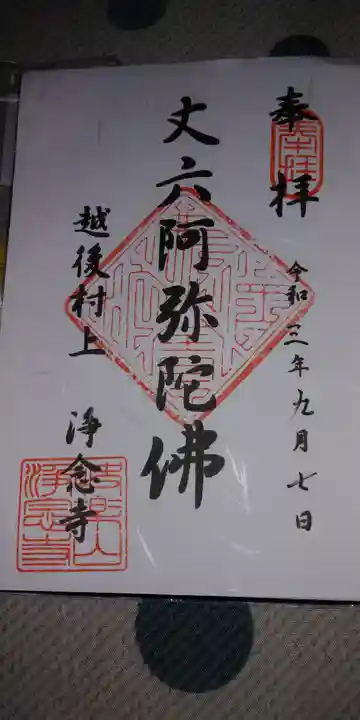 奉拝
令和三年九月七日
丈六阿弥陀佛
越後村上 浄念寺